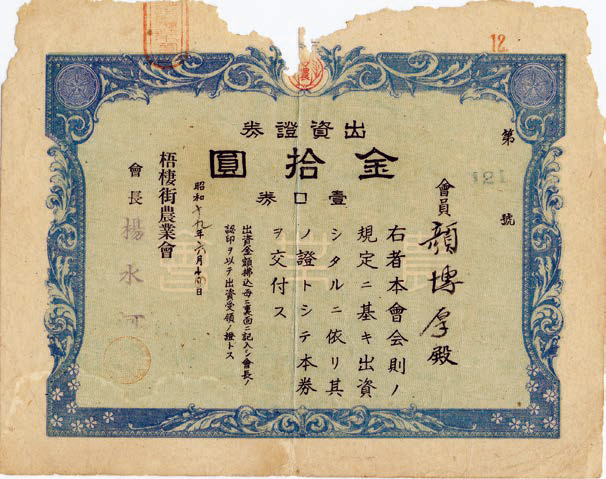 出資證券
金拾圓
壹口券
第 121 號
12
農
會員 顏博厚殿
右者本會会則ノ
規定ニ基キ出資
シタルニ依リ其
ノ證トシテ本券
ヲ交付ス
出資金額拂込毎ニ裏面ニ記入シ會長ノ
認印ヲ以テ出資受領ノ證トス
昭和十九年六月十四日
梧棲街農業會
會長 楊永河